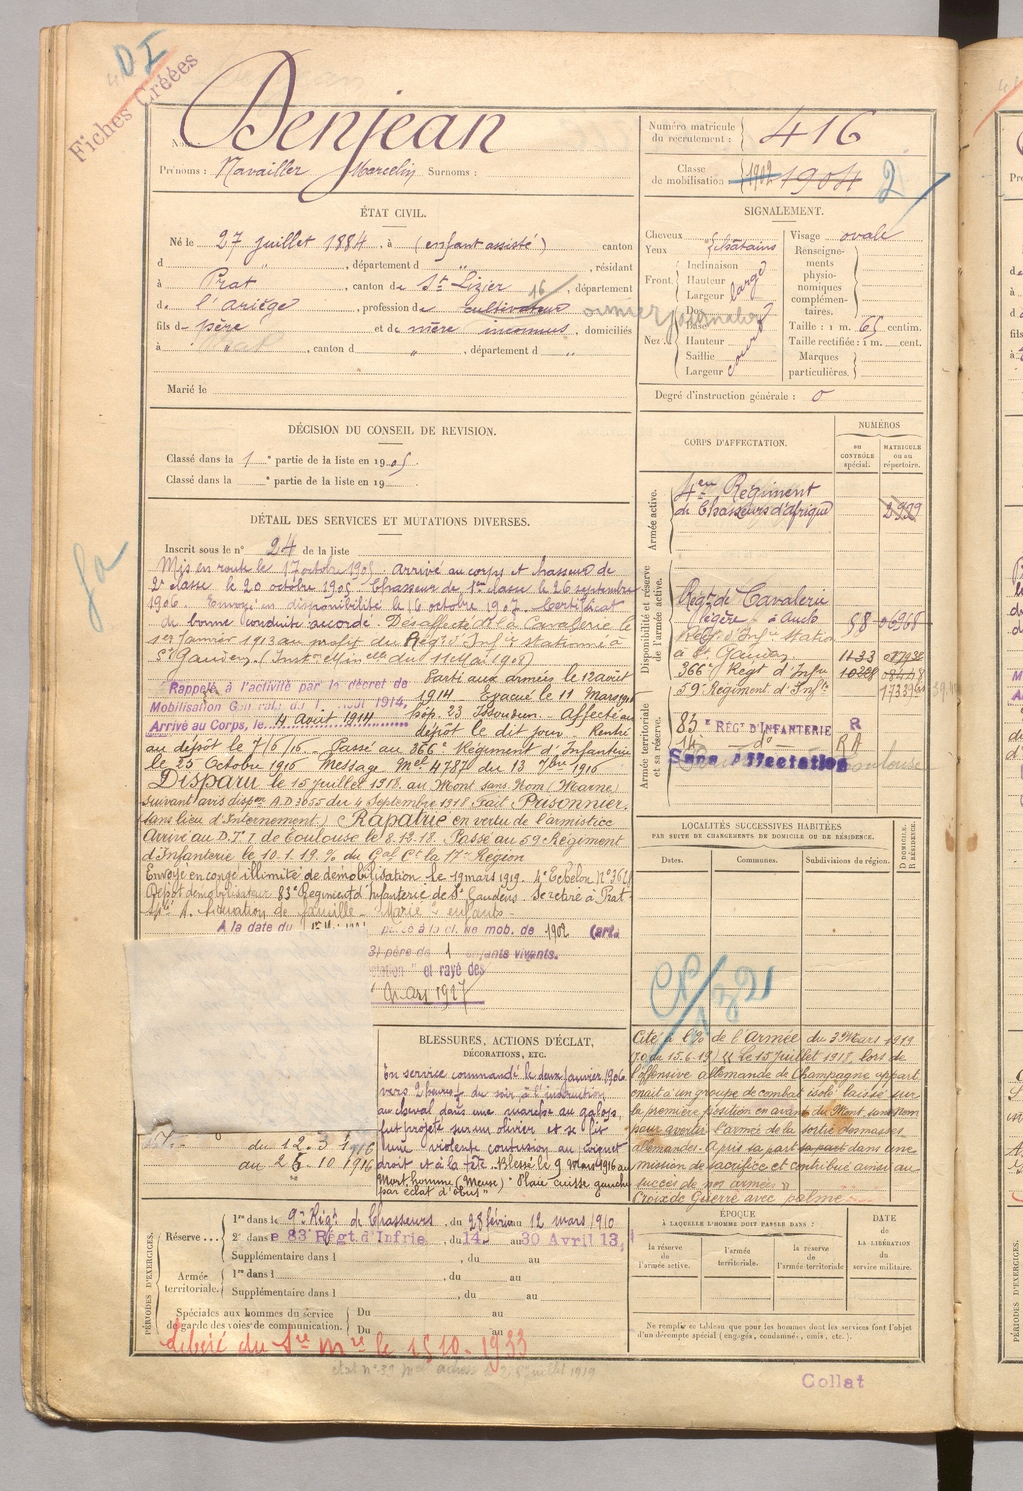 DI
Fiches Créées
Nom : Denjean
Prénoms : Navailler Marcelin Surnoms :
Numéro matricule du recrutement : 416
Classe de mobilisation 1902 1904 2
ÉTAT CIVIL.
Né le 27 juillet 1884, à (enfant assisté) canton
d " , département d " , résidant
à Prat , canton de St Lizier , département
de l'Ariège , profession de cultivateur 16 ouvrier journalier
fils de père et de mère inconnus , domiciliés
à " , canton d " , département d "
Marié le
SIGNALEMENT.
Cheveux
Yeux châtains
Front Inclinaison
Hauteur
Largeur large
Nez : Dos
Base
Hauteur
Saillie
Largeur
Visage ovale
Renseignements physionomiques complémentaires.
Taille : 1 m. 65 centim.
Taille rectifiée : 1 m. cent.
Marques particulières.
Degré d'instruction générale : 0
DÉCISION DU CONSEIL DE REVISION.
Classé dans la 1 e partie de la liste en 1905.
Classé dans la e partie de la liste en 19
DÉTAIL DES SERVICES ET MUTATIONS DIVERSES.
Inscrit sous le n° 24 de la liste
Mis en route le 17 octobre 1905. Arrivé au corps et chasseur de
2e classe le 20 octobre 1905 Chasseur de 1re classe le 26 septembre
1906. Envoyé en disponibilité le 16 octobre 1907. Certificat
de bonne conduite accordé. Désaffecté de la Cavalerie le
1er Janvier 1913 au profit du Régt d'Infie stationné à
St Gaudens (Instron Minelle du 11 Mai 1908)
Rappelé à l'activité par le décret de
Mobilisation Générale du 1 Août 1914,
Arrivé au Corps, le 4 août 1914
Parti aux armées le 12 août
1914 Evacué le 11 Mars 1916
hôp. 23 Issoudun. Affecté au
dépôt le dit jour. Rentré
au dépôt le 7/6/16. Passé au 366e Régiment d'Infanterie
le 25 Octobre 1916 Message Mel 4787 du 13 7bre 1916
Disparu le 15 juillet 1918 au Mont sans Nom (Marne)
suivant avis dispon A.D 3655 du 4 Septembre 1918 Fait Prisonnier.
(sans lieu d'Internement) Rapatrié en vertu de l'armistice
Arrivé au D.T.I de Toulouse le 8.12.18. Passé au 59e Régiment
d'Infanterie le 10.1.19 % du Gal Ct la 17e Région
Envoyé en congé illimité de démobilisation le 19 mars 1919 4e Echelon N° 362
Dépôt démobilisateur 83e Régiment d'Infanterie de St Gaudens. Se retire à Prat
Situation de famille Marié enfants
A la date du
de mob. de 1902
père de 1 enfants vivants.
et rayé des
mars 1927
du 12. 3 1916
du 25. 10 1916
CORPS D'AFFECTATION.
NUMÉROS
au CONTRÔLE spécial.
MATRICULE ou au répertoire.
Armée active.
4e Régiment
de Chasseurs d'afrique 2999
Disponibilité et réserve de l'armée active.
Régt de Cavalerie
légère à Auch 58 06968
Régt d'Infie Statio
à St Gaudens 1133
366e Régt d'Infie 10328
59e Régiment d'Infie 17339
Armée territoriale et sa réserve.
83e RÉGt D'INFANTERIE R
14 do RA
Sans Affectation Toulouse
LOCALITÉS SUCCESSIVES HABITÉES
PAR SUITE DE CHANGEMENTS DE DOMICILE OU DE RÉSIDENCE.
Dates. Communes. Subdivisions de région.
D DOMICILE. R RÉSIDENCE.
BLESSURES, ACTIONS D'ÉCLAT,
DÉCORATIONS, ETC.
En service commandé le deux janvier 1906
vers 2 heures ½ du soir à l'instruction
au cheval dans une marche au galop,
fut projeté sur un olivier et se fit
une violente contusion au poignet
droit et à la tête. Blessé le 9 Mars 1916 au
Mort homme (Meuse) "Plaie cuisse gauche
par éclat d'obus"
Cité à l'O/ de l'Armée du 3 Mars 1919
(J.O. du 15.6.19) "Le 15 juillet 1918 lors de
l'offensive allemande de Champagne appart
enait à un groupe de combat isolé laissé sur
la première position en avant du Mont sans nom
pour avertir l'armée de la sortie des masses
allemandes. A pris sa part sa part dans une
mission de sacrifice et contribué ainsi au
succès de nos armées"
Croix de Guerre avec palme
PÉRIODES D'EXERCICES.
Réserve 1re dans le 9e Régt de Chasseurs , du 28 février au 12 mars 1910
2e dans le 83e Régt. d'Infrie , du 14 au 30 Avril 13,
Supplémentaire dans l , du au
Armée territoriale. 1re dans l , du au
Supplémentaire dans l , du au
Spéciales aux hommes du service de garde des voies de communication. Du au
Du au
ÉPOQUE
À LAQUELLE L'HOMME DOIT PASSER DANS :
la réserve de l'armée active.
l'armée territoriale.
la réserve de l'armée territoriale
DATE de LA LIBÉRATION du service militaire.
Ne remplir ce tableau que pour les hommes dont les services font l'objet
d'un décompte spécial (engagés, condamnés, omis, etc.).
Libéré du Sce Mre le 15 10. 1933
Collat